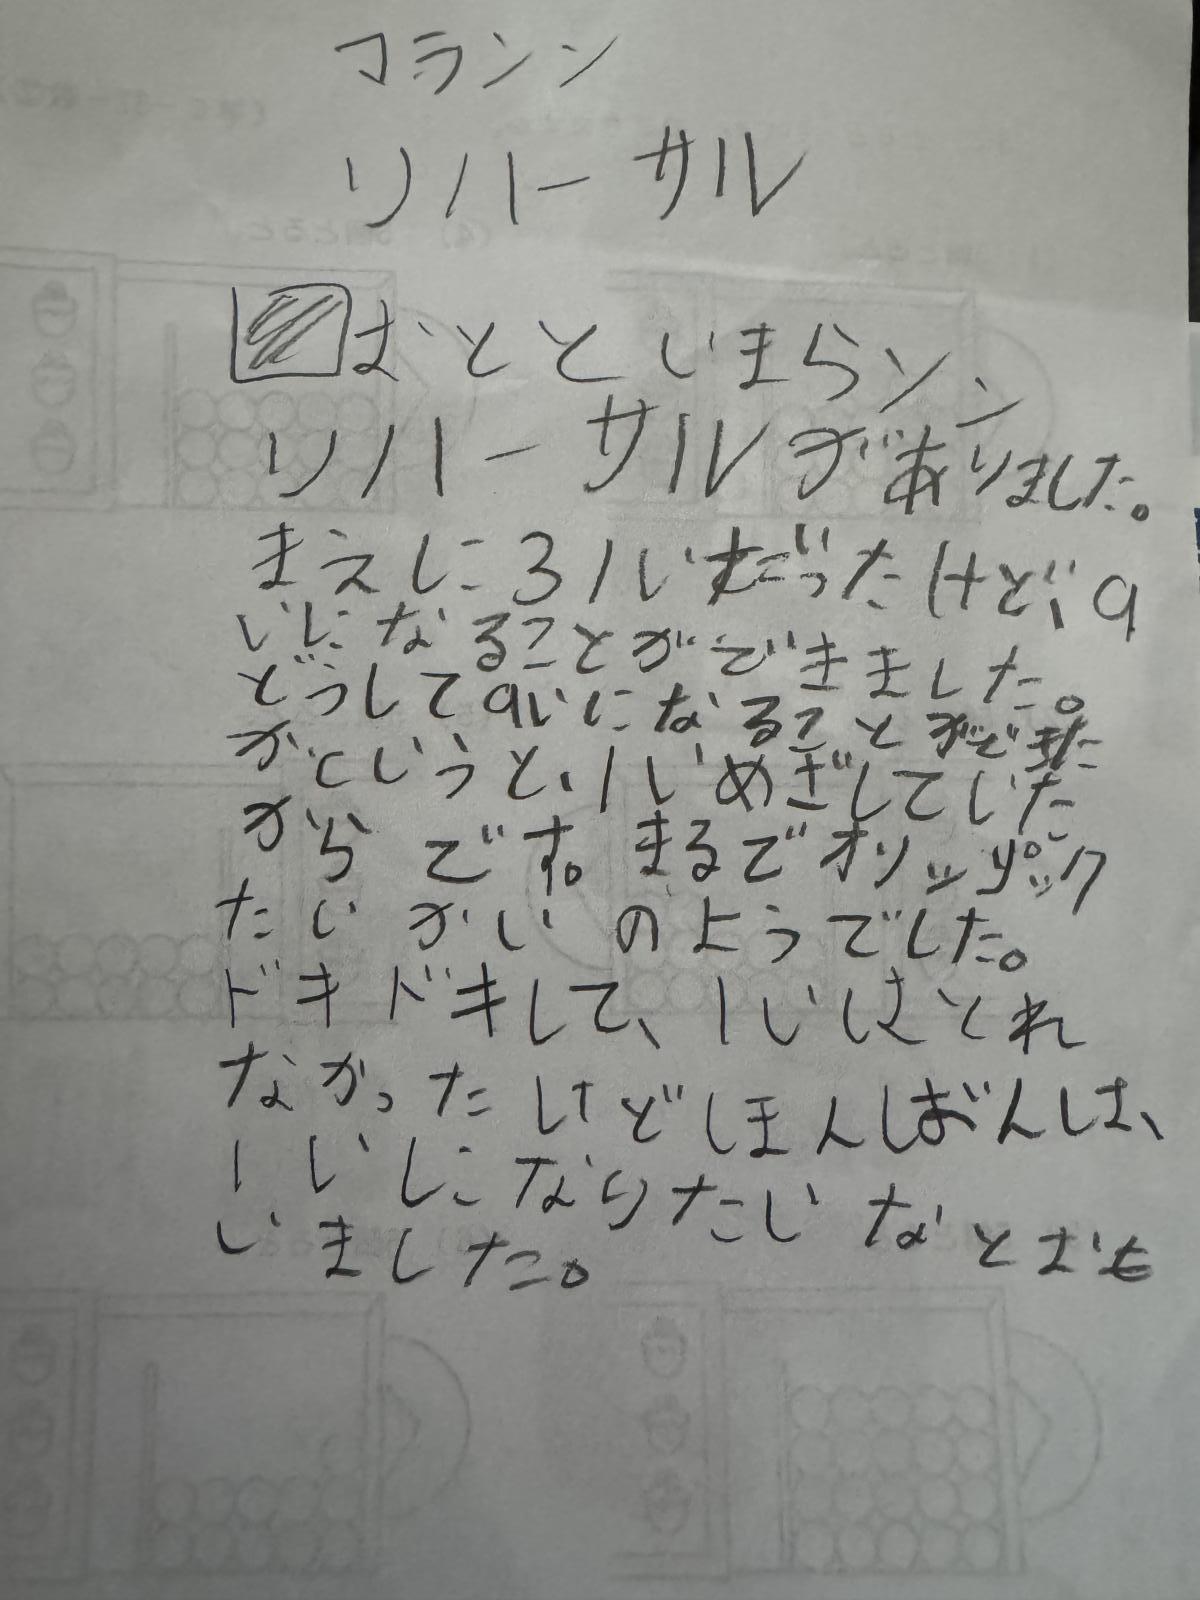 マランン
リハーサル
おとといまらソン
リハーサルがありました。
まえに31いだったけど、9
いになることができました。
どうして9いになることができた
かというと、1いめざしていた
からです。まるでオリンピック
たいかいのようでした。
ドキドキして、1いはとれ
なかったけどほんばんは、
1いになりたいなとおも
いました。